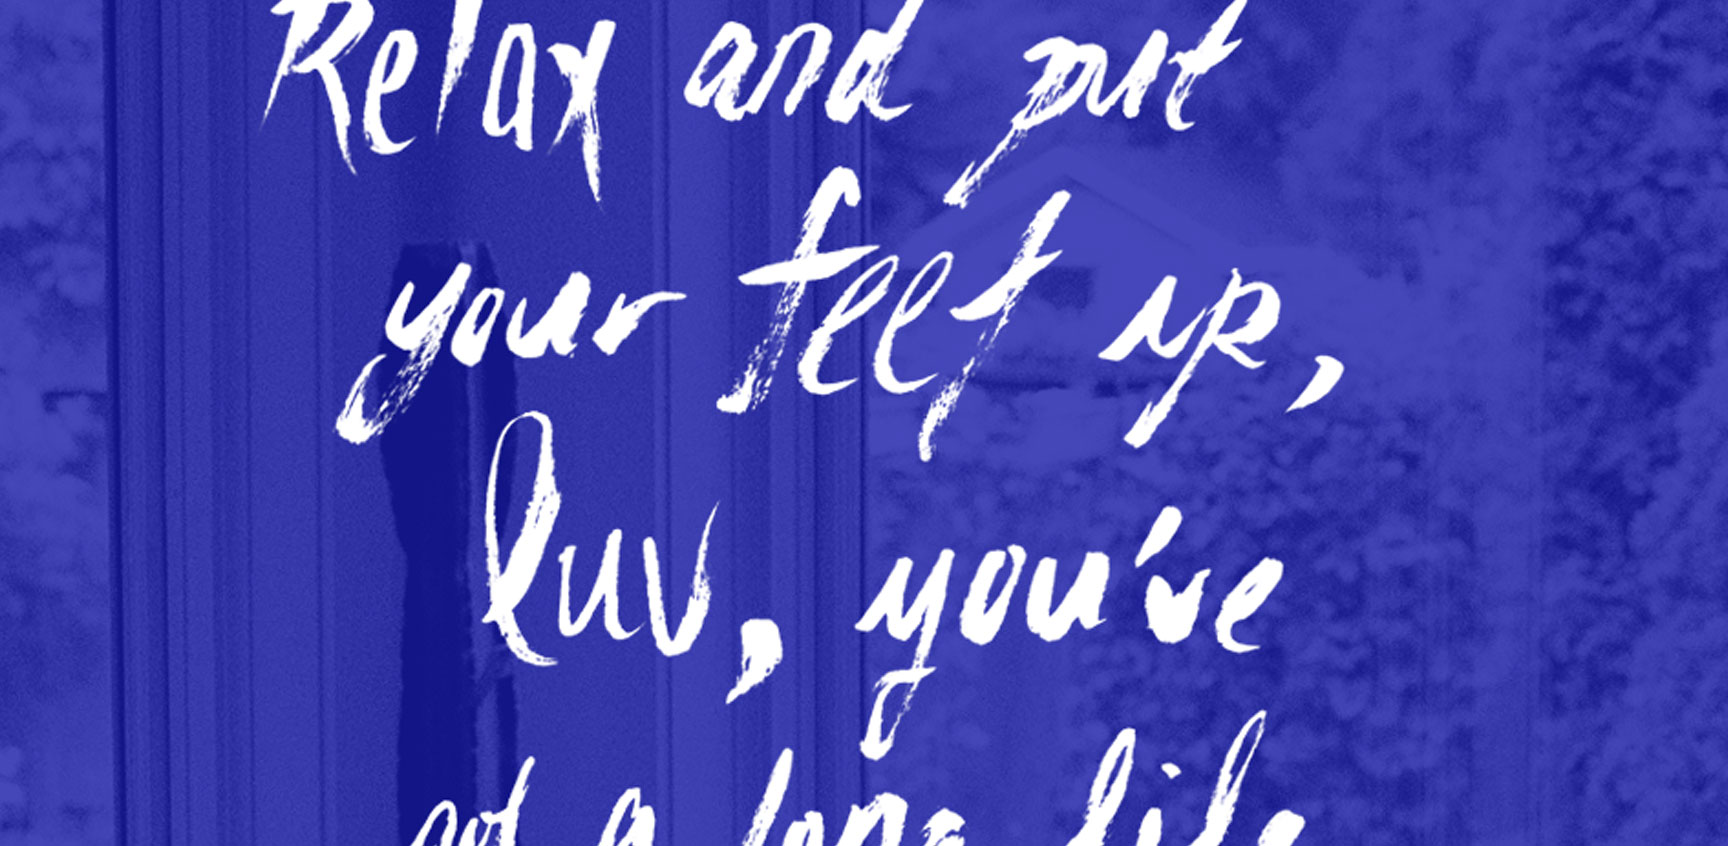 Relax and put
your feet up,
luv, you've
got a long life